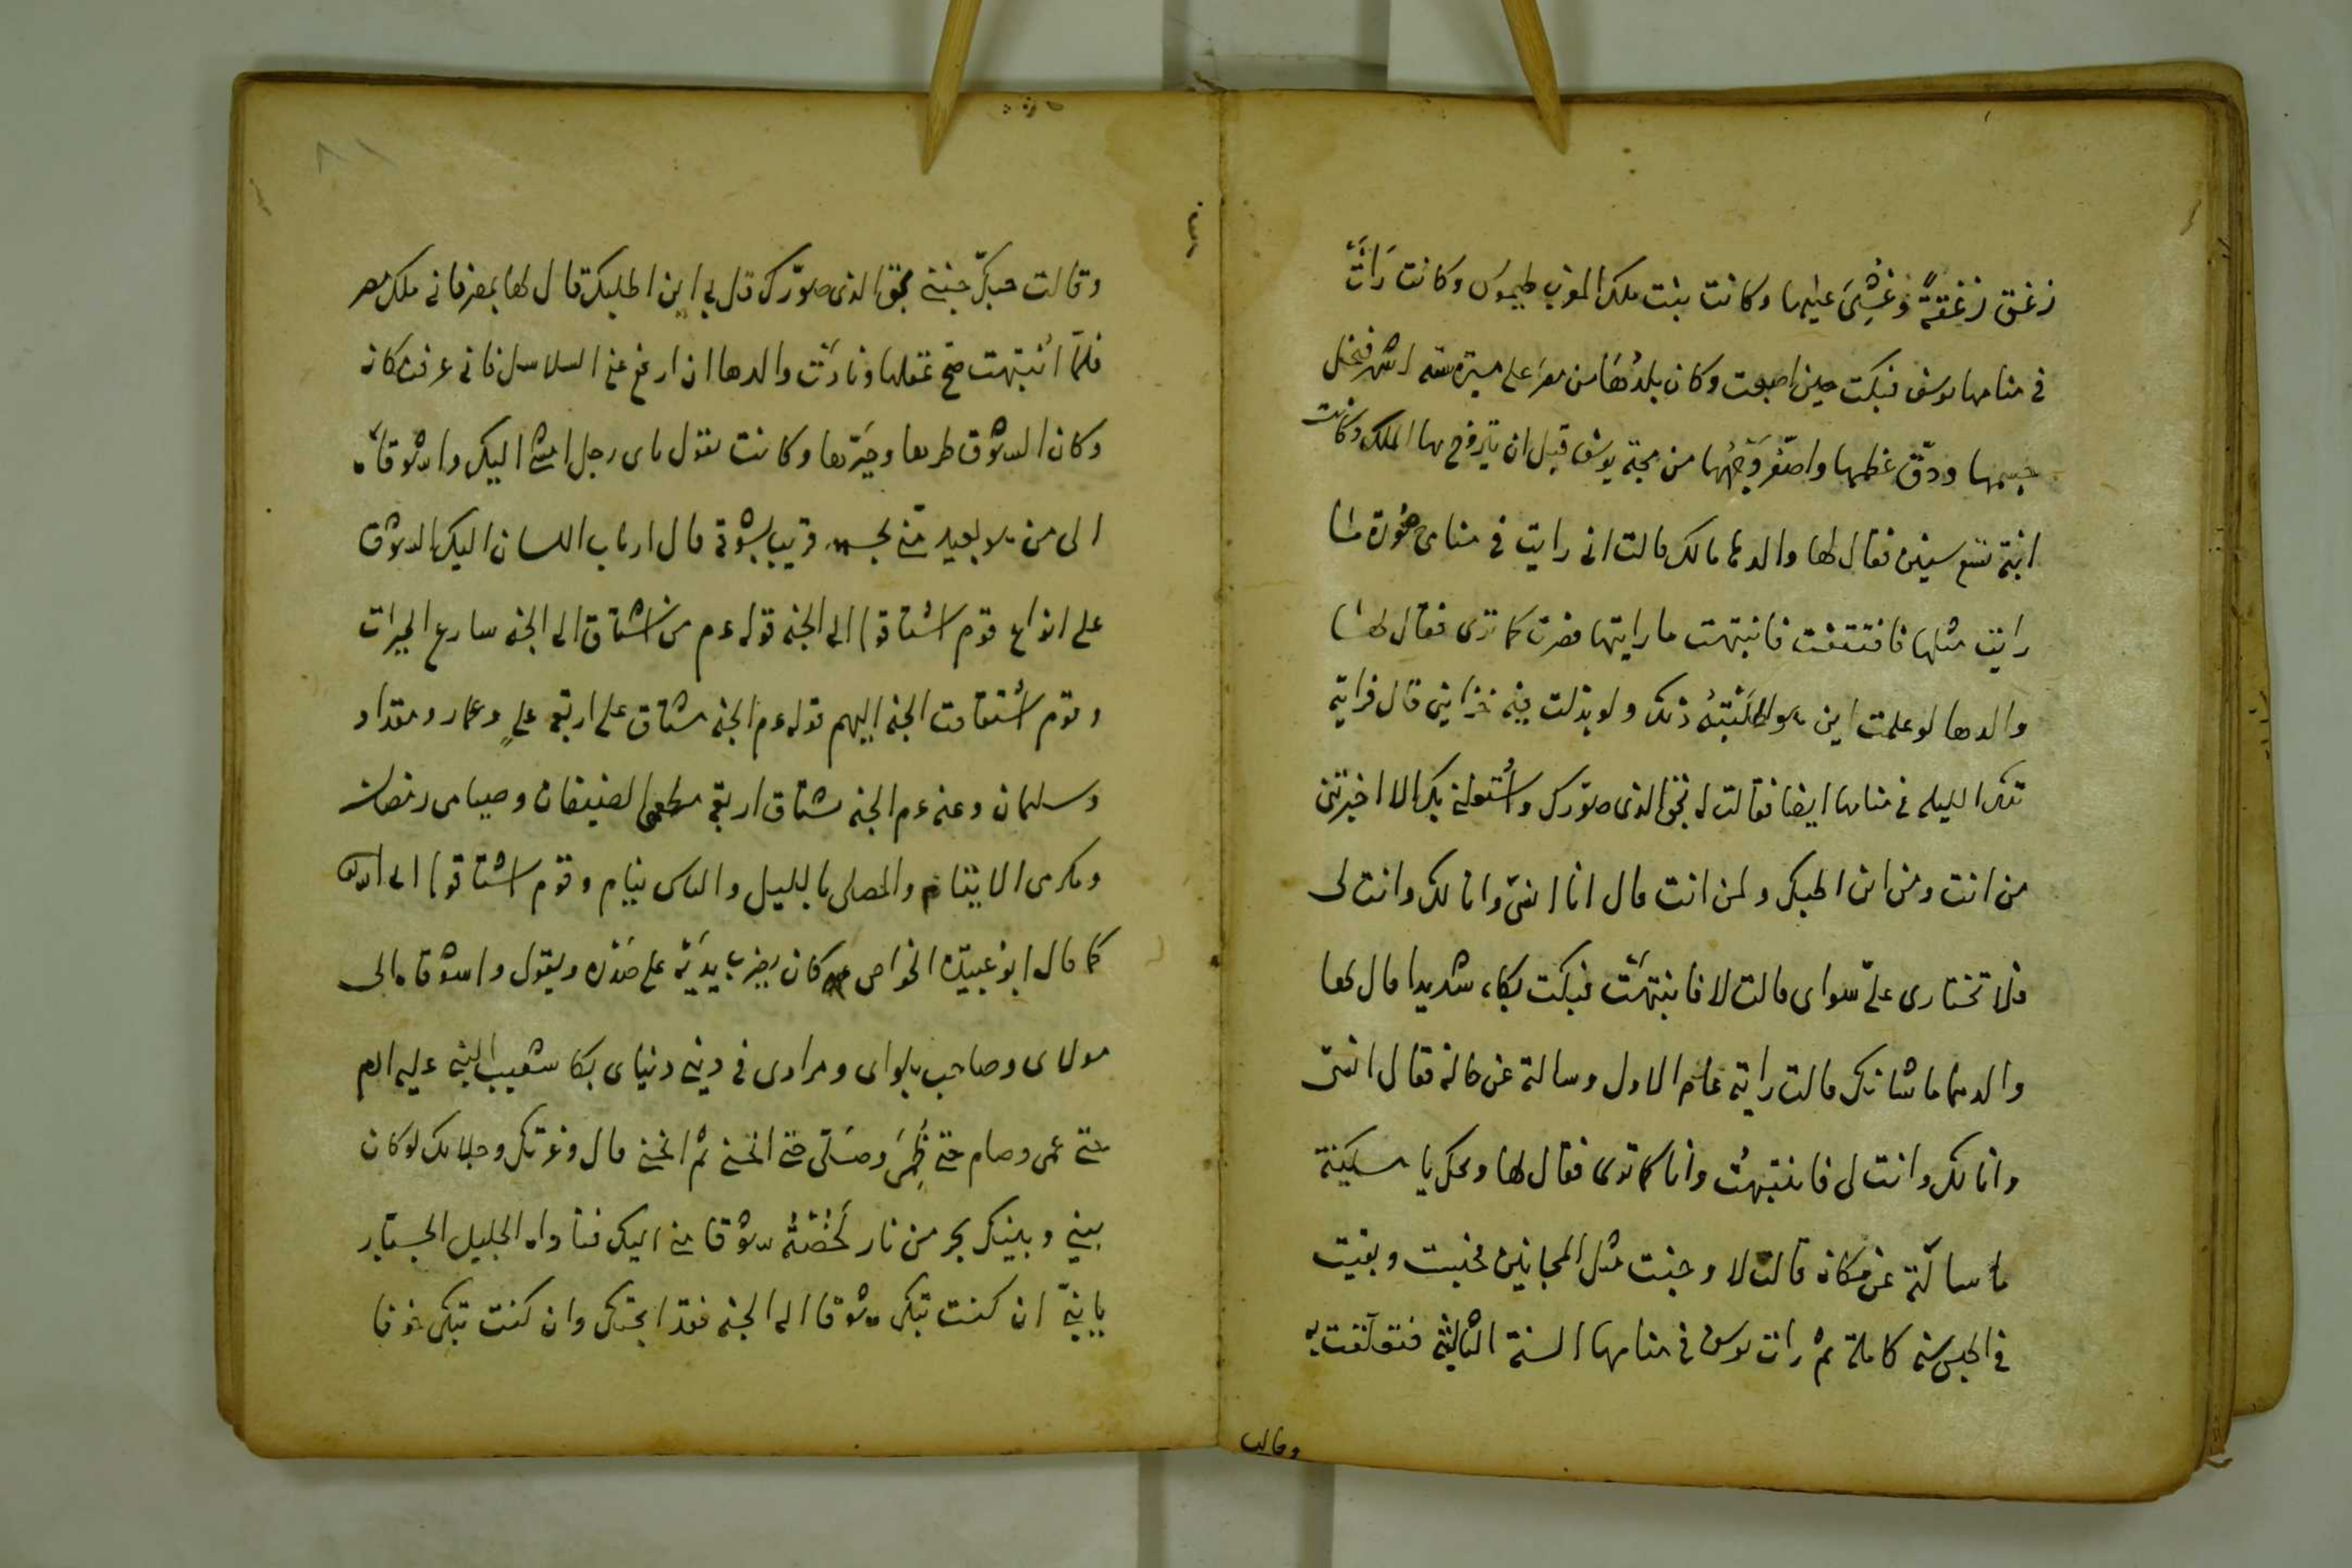 زعق زَعْقَةً وَغُشِىَ عليها وكانت بنت ملك المغرب طيموس وكانت رَأَتْ
فى منامها يوسف فبكت حين اصبحت وكان بلدُهَا من مصر على مسيرة ستة اشهر فنحل
جسمها ودقّ عظمها واصفرّ وَجْهُهَا من محبة يوسف قبل ان يتزوج بها الملك وكانت
ابنة تسع سنين فقال لها والدها مالك قالت انى رايت فى منامى صُورة ما
رايت مثلها فافتتنت فانتبهت ما رايتها فصرت كما ترى فقال لها
والدها لو علمت اين هو لطَلَبْتُهُ ذلك ولو بذلت فيه خزاينى قال فراته
تلك الليله فى منامها ايضا فقالت له بحق الذى صوّرك واشغلنى بك الا اخبرتنى
من انت ومن اين اطلبك ولمن انت قال انا انسى وانا لك وانت لى
فلا تختارى علىّ سواى قالت لا فانتبهَتْ فبكت بكاء شديدا قال لها
والدها ما شانك قالت رايته عام الاول وسالته عن حاله فقال انسى
وانا لك وانت لى فانتبهتُ وانا كما ترى فقال لها ويحك يا مسكينة
ما سالته عن مكانه قالت لا وجنت مثل المجانين فحبست وبقيت
فى الحبس سنه كاملة ثم رات يوسف فى منامها السنة الثالثة فتعلّقت به
وقالت
وقالت حبّك جننى بحق الذى صوّرك قل لى اين اطلبك قال لها بمصر فانى ملك مصر
فلمّا انتبهت صح عقلها ونادَتْ والدها ان ارفع عنى السلاسل فانى عرفت مكانه
وكان الشوق طربها وحيّرها وكانت تقول باى رجل امشى اليك واشوقاه
الى من لا بعيد منى قريب بشوق قال ارباب اللسان اليك الشوق
على انواع قوم اشتاقوا الى الجنه قوله عم من اشتاق الى الجنه سارع الخيرات
وقوم اشتاقت الجنه اليهم قوله عم الجنه مشتاق على اربعه علىٍ وعمار ومقداد
وسلمان وعنه عم الجنه مشتاق اربعه مطعمى الضيفان وصيامى رمضان
ومكرمى الايتام والمصلى بالليل والناس نيام وقوم اشتاقوا الى الله
كما قال ابو عبيدة الخواص كان يضرب يديه على صَدْره ويقول واشوقاه الى
مولاى وصاحب بلواى ومرادى فى دينى دنياى بكا شعيب النبى عليه السلم
حتى عمى وصام حتى ظَمِىَ وصَلّى حتى انحنى ثم انحنى قال وعزتك وجلالك لو كان
بينى وبينك بحر من نار لَخُضْتُهُ شوقا منى اليك فناداه الجليل الجبّار
يا نبىّ ان كنت تبكى شوقا الى الجنه فقد ابحتك وان كنت تبكى خوفا